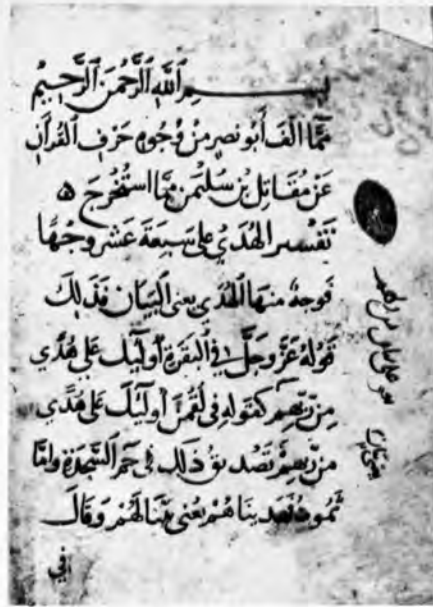 بسم الله الرحمن الرحيم
مما الف أبو نصر من وجوه حرف القرآن
عن مقاتل بن سليمن مما استخرج ه
تفسير الهدى على سبعة عشر وجها
فوجه منها الهدى يعني البيان فذلك
قوله عز وجل في البقرة أولئك على هدى
من ربهم كقوله في لقمن أولئك على هدى
من ربهم تصديق ذلك في حم السجدة واما
ثمود فهديناهم يعني بينا لهم وقال
في